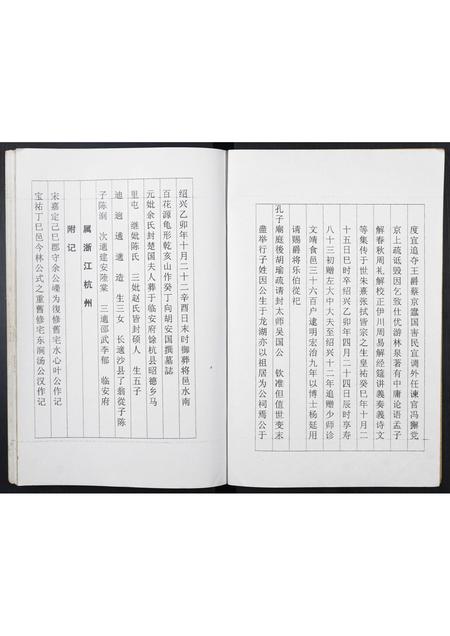 度宜追夺王爵蔡京蠹国害民宜调外任谏官冯澥党
京上疏诋毁因乞致仕优游林泉著有中庸论语孟子
解春秋周礼解校正伊川周易解经筵讲義奏義诗文
等集传于世朱熹张拭皆宗之生皇祐癸巳年十月二
十五日巳时卒绍兴乙卯年四月二十四日辰时享寿
八十三初赠左大中大夫至绍兴十二年追赠少师诊
文靖食邑三十六百户逮明宏治九年以博士杨廷用
请赐爵将乐伯從祀
孔子廟庭後胡瑜疏请封太师吴国公 钦准但值世变末
盡举行子姓因公生于龙湖亦以祖居为公祠焉公于
绍兴乙卯年十月二十二辛酉日末时御葬将邑水南
百花源龟形乾亥山作癸丁向胡安国撰墓誌
元妣余氏封楚国夫人葬于临安府馀杭县昭德乡马
里屯 继妣陈氏 三妣赵氏皆封硕人 生五子
迪 迥 遹 適 造 生三女 长適沙县了翁從子陈
子陈渊 次適建安陸棠 三適邵武李郁 临安府
属浙江杭州
附记
宋嘉定己巳郡守余公嶸为復修舊宅水心叶公作记
宝祐丁巳邑今林公式之重舊修宅东涧汤公汉作记